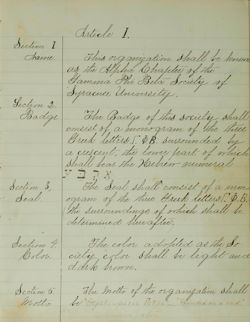 Article I.
Section 1
Name
This organization shall be known
as the Alpha Chapter of the
Gamma Phi Beta Society of
Syracuse University.
Section 2.
Badge
The Badge of this society shall
consist of a monogram of the three
Greek letters Γ. Φ. Β. surrounded by
a crescent, the lower part of which
shall bear the Hebrew numeral
Section 3.
Seal.
The Seal shall consist of a mon-
ogram of the three Greek letters Γ. Φ. Β.
the surroundings of which shall be
determined hereafter.
Section 4.
Color.
The color adopted as the So-
ciety color shall be light and
dark brown.
Section 5.
Motto
The Motto of the organization shall
be